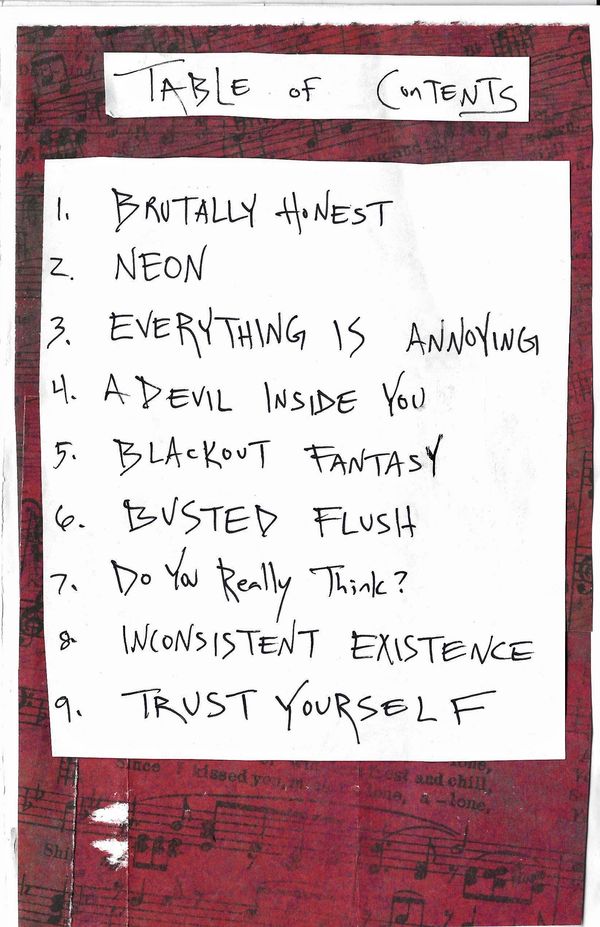 TABLE OF CONTENTS
1. BRUTALLY HONEST
2. NEON
3. EVERYTHING IS ANNOYING
4. A DEVIL INSIDE YOU
5. BLACKOUT FANTASY
6. BUSTED FLUSH
7. Do You Really Think?
8. INCONSISTENT EXISTENCE
9. TRUST YOURSELF
Since I kissed you,
rest and chill,
lone,
lone, a-lone,
Shi